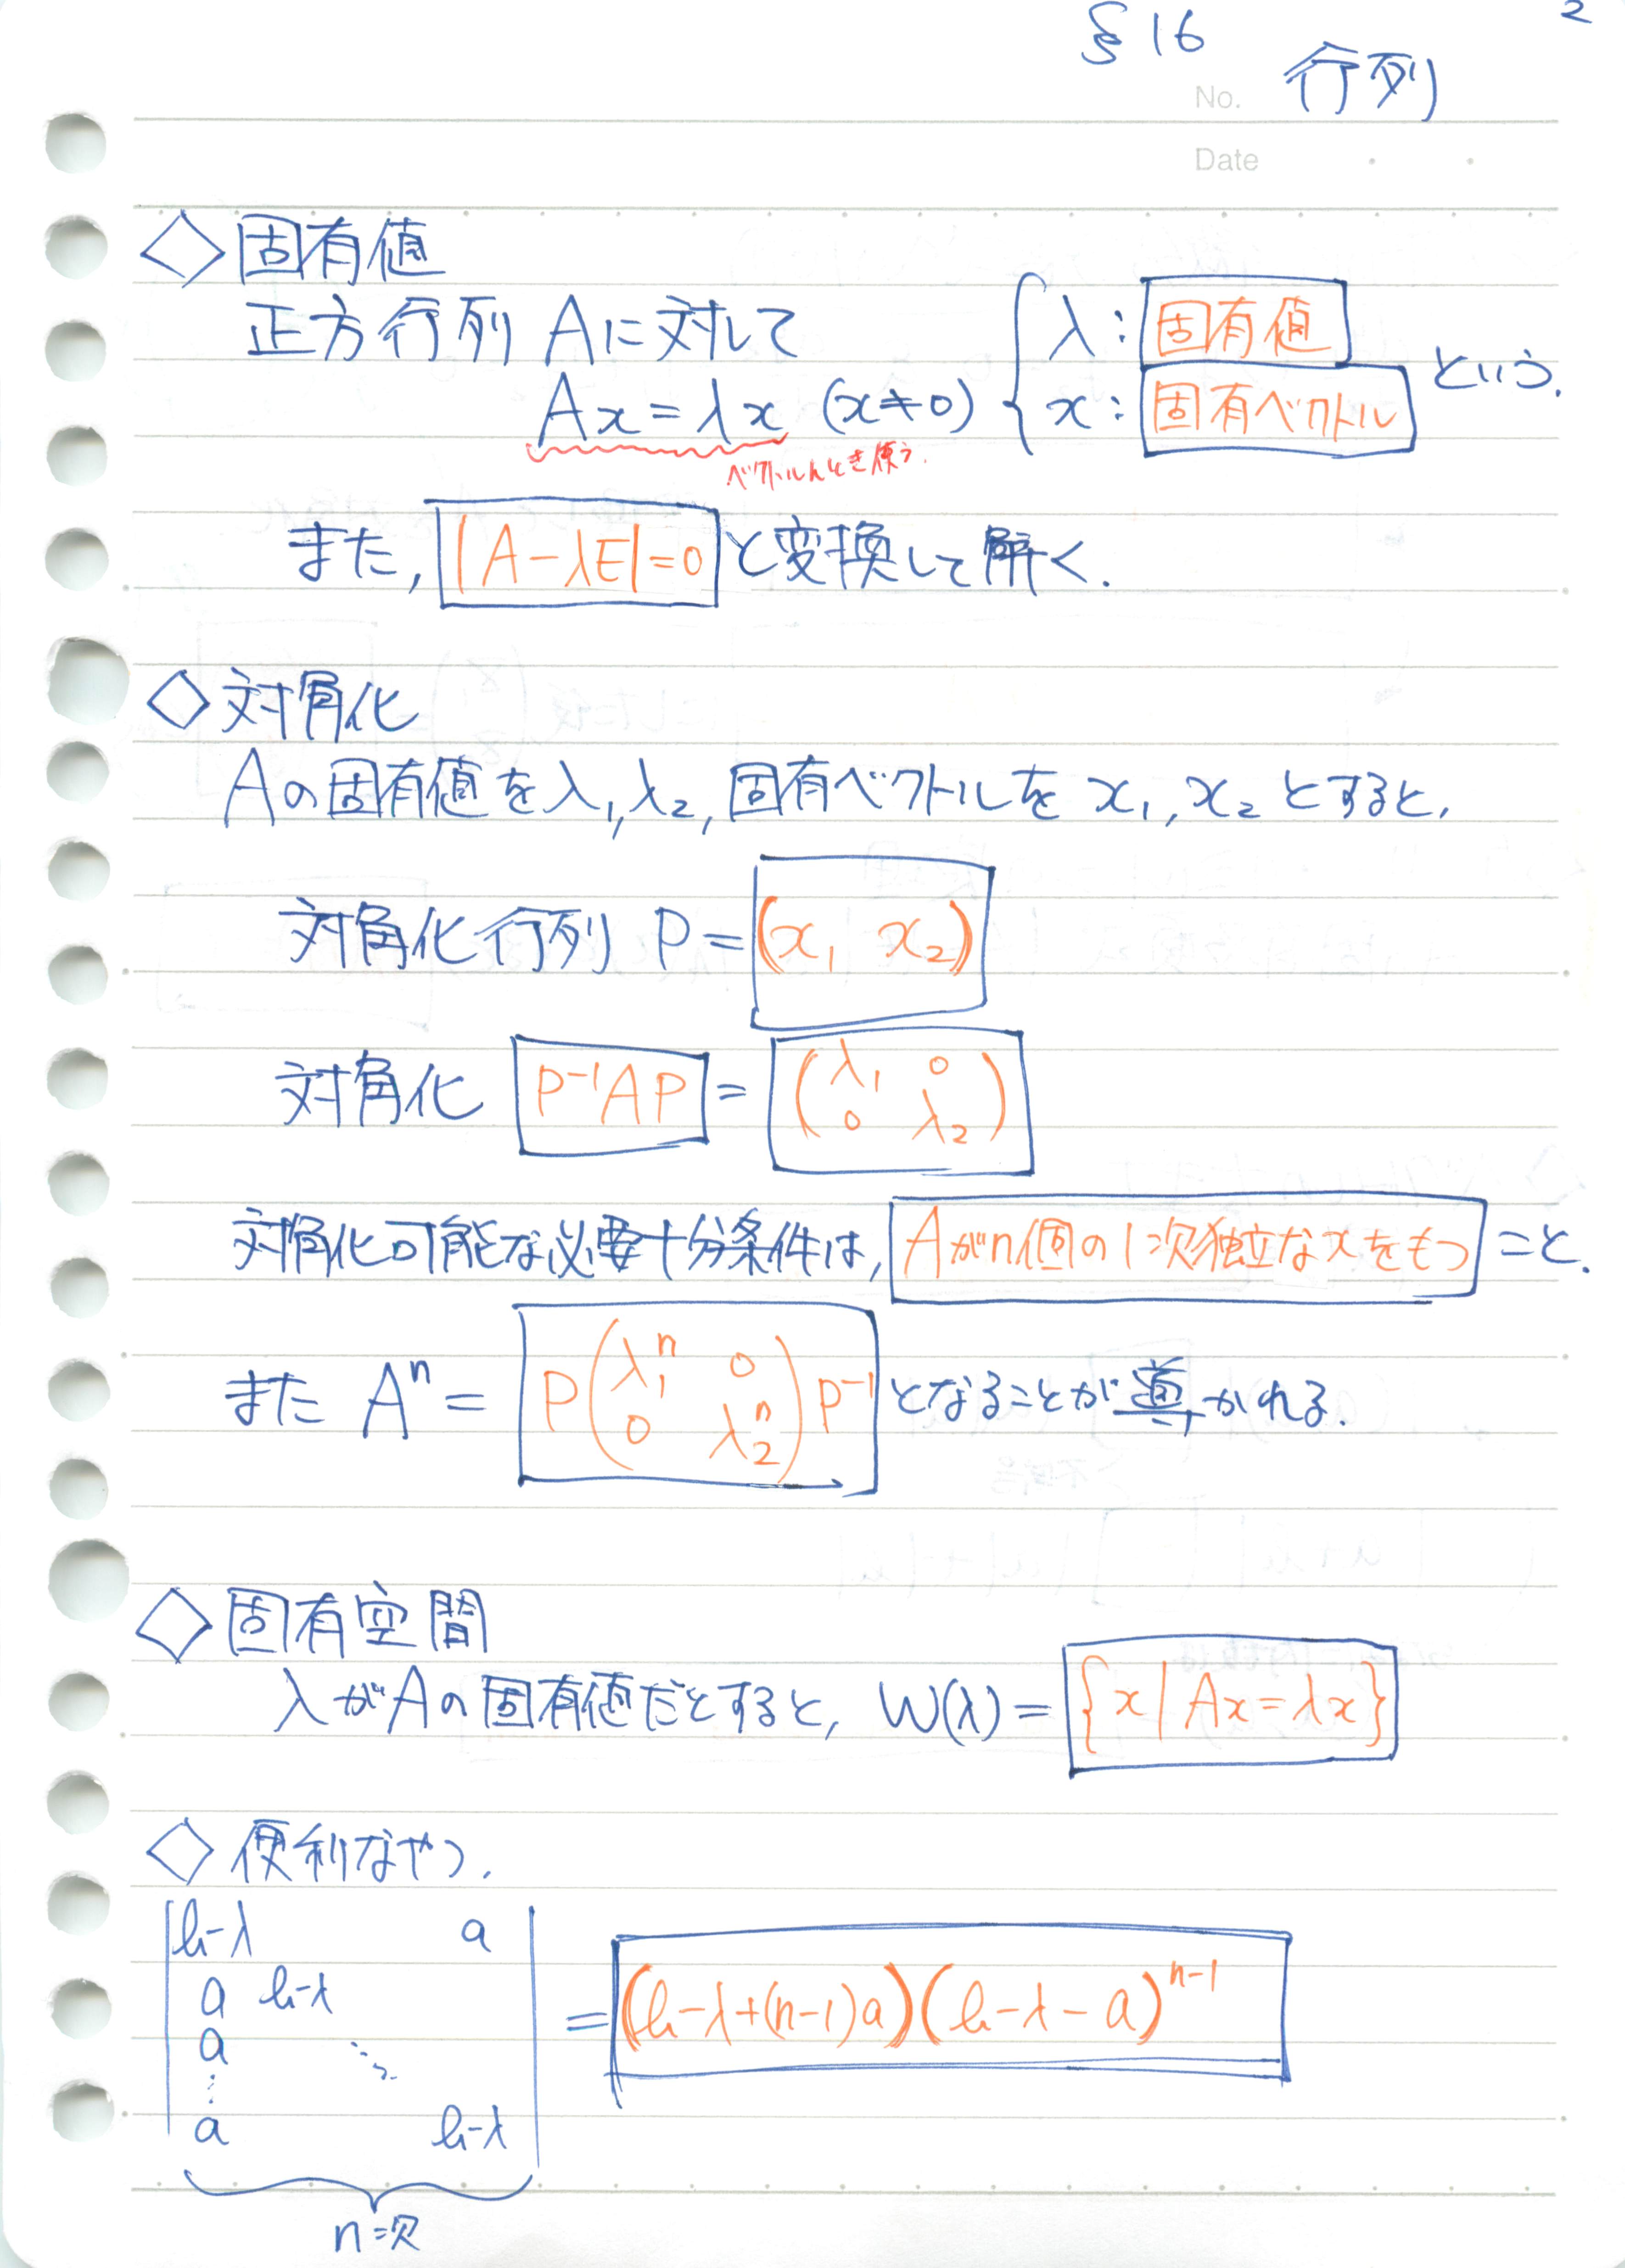 §16
2
No. 行列
Date
◇固有値
正方行列 Aに対して
Ax=λx (x≠0) { λ: 固有値 x: 固有ベクトル という.
ベクトルんとき使う.
また, |A-λE|=0 と変換して解く.
◇対角化
Aの固有値をλ₁,λ₂, 固有ベクトルを x₁,x₂ とすると,
対角化行列 P=(x₁ x₂)
対角化 P⁻¹AP = (λ₁ 0 0 λ₂)
対角化可能な必要十分条件は, Aがn個の1次独立なxをもつ こと.
また Aⁿ = P(λ₁ⁿ 0 0 λ₂ⁿ)P⁻¹ となることが導かれる.
◇固有空間
λがAの固有値だとすると, W(λ) = {x|Ax=λx}
◇便利なやつ.
b-λ a
a b-λ
= (b-λ+(n-1)a)(b-λ-a)ⁿ⁻¹
a ⋱
⋮
a b-λ
n次